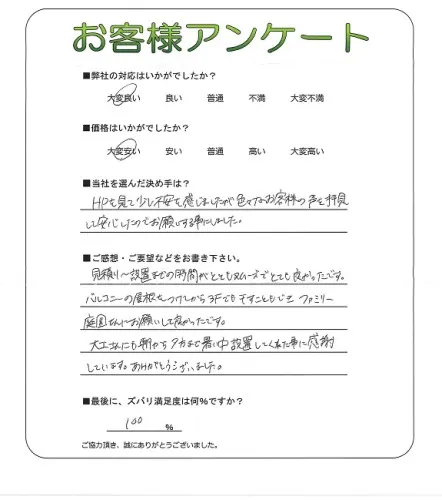 お客様アンケート
■弊社の対応はいかがでしたか?
大変良い 良い 普通 不満 大変不満
■価格はいかがでしたか?
大変安い 安い 普通 高い 大変高い
■当社を選んだ決め手は?
HPを見て少し不安を感じましたが色々なお客様の声を拝見
して安心したのでお願いする事にしました。
■ご感想・ご要望などをお書き下さい。
見積り〜設置までの時間がとてもスムーズでとても良かったです。
バルコニーの屋根をつけてから3Fでもすこともでき ファミリー
庭園さんにお願いして良かったです。
大工さんにも朝から夕方まで暑い中設置してくれた事に感謝
しています。ありがとうございました。
■最後に、ズバリ満足度は何%ですか?
100 %
ご協力頂き、誠にありがとうございました。